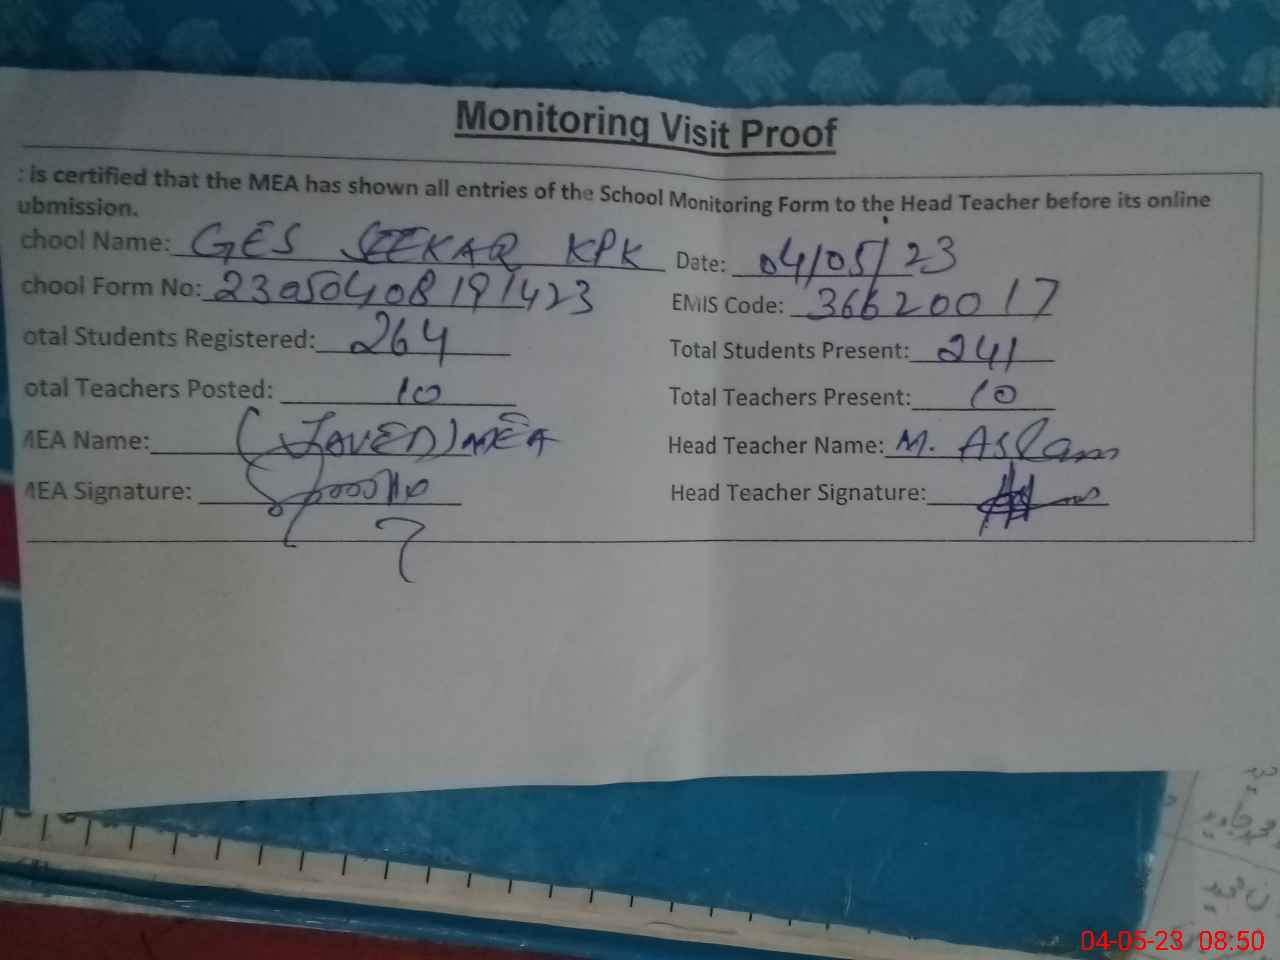 Monitoring Visit Proof
: is certified that the MEA has shown all entries of the School Monitoring Form to the Head Teacher before its online
ubmission.
chool Name: GES SEEKAR KPK Date: 04/05/23
chool Form No: 23050408191423 EMIS Code: 36620017
otal Students Registered: 264 Total Students Present: 241
otal Teachers Posted: 10 Total Teachers Present: 10
MEA Name: (JAVED) MEA Head Teacher Name: M. Aslam
MEA Signature: Head Teacher Signature:
04-05-23 08:50